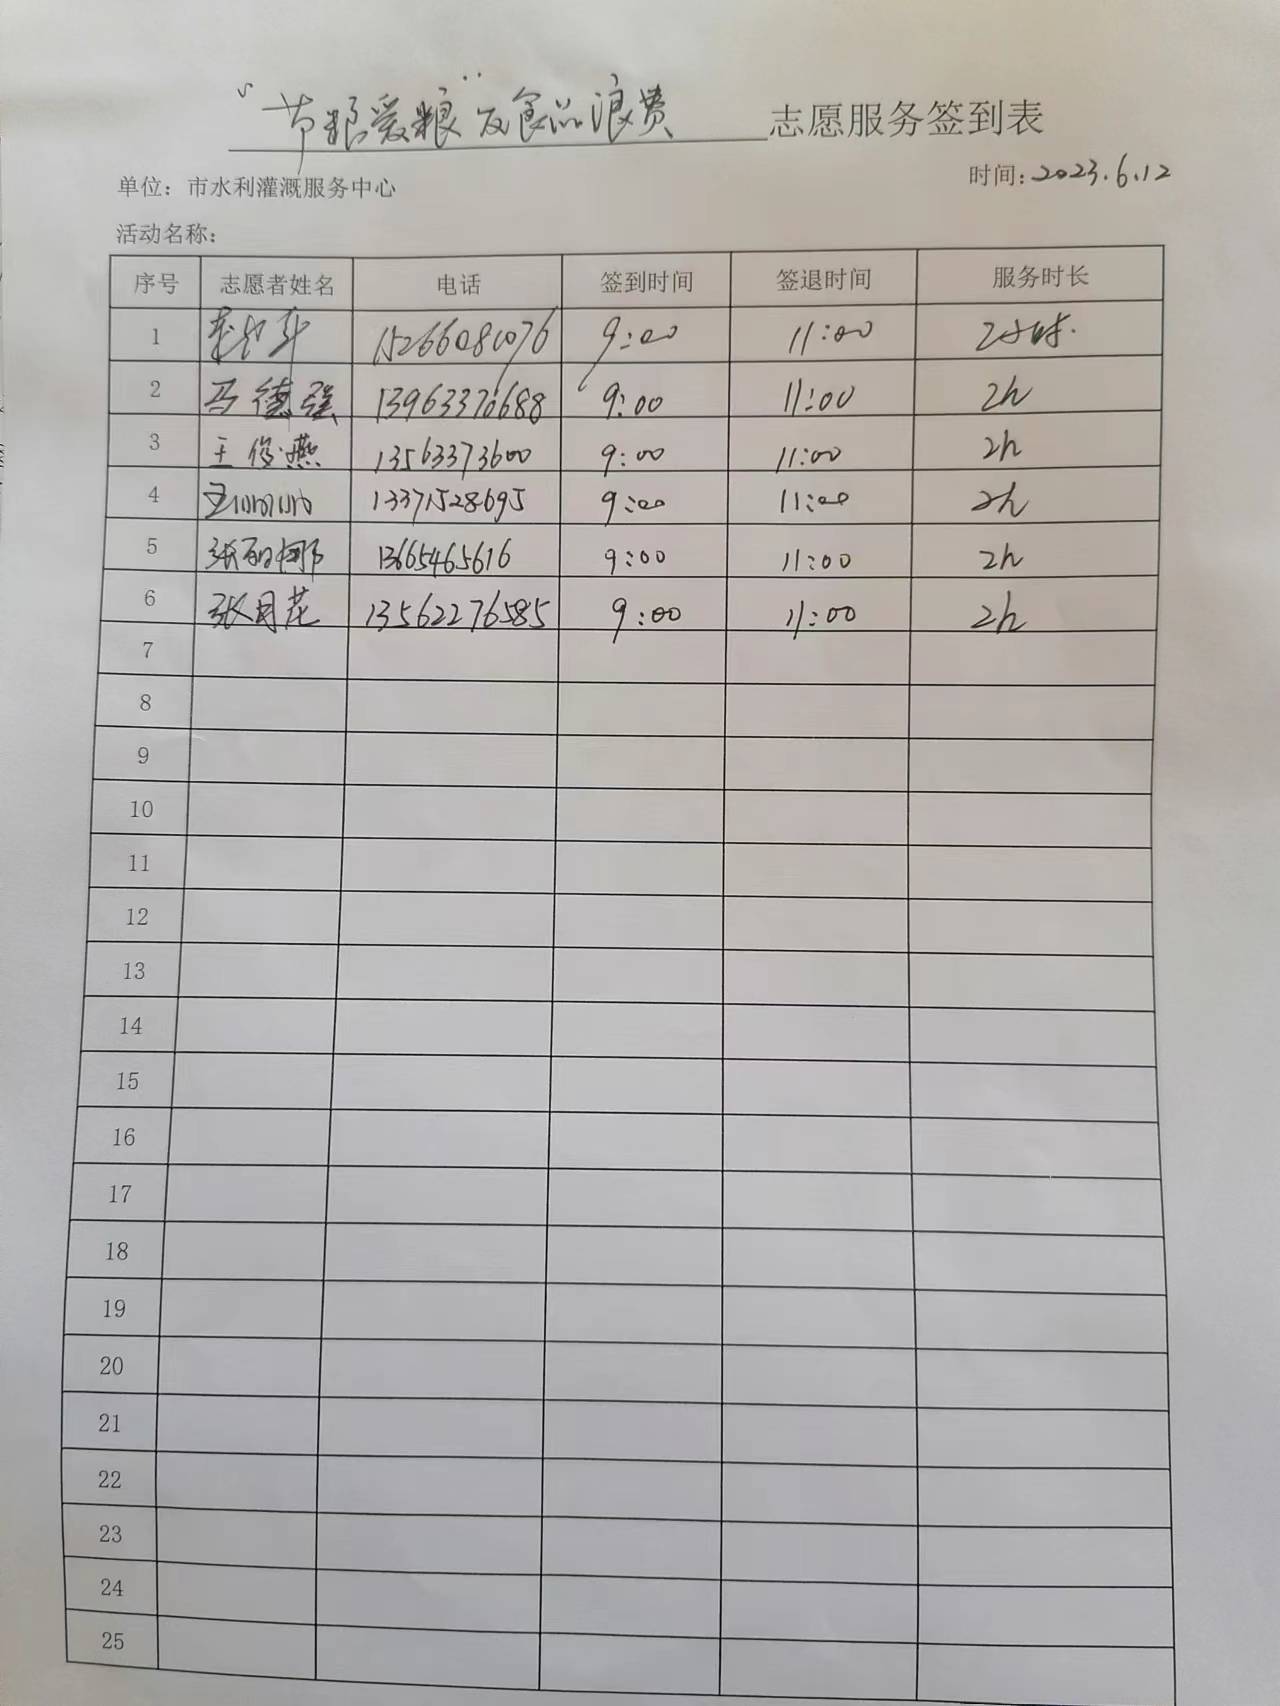 “节粮爱粮”反食品浪费 志愿服务签到表
单位：市水利灌溉服务中心 时间：2023.6.12
活动名称：
序号 志愿者姓名 电话 签到时间 签退时间 服务时长
1 15266081076 9:00 11:00 2小时.
2 马德强 13963370688 9:00 11:00 2h
3 王俊燕 13563373600 9:00 11:00 2h
4 13371528695 9:00 11:00 2h
5 张丽娜 13665465616 9:00 11:00 2h
6 张月花 13562276585 9:00 11:00 2h
7
8
9
10
11
12
13
14
15
16
17
18
19
20
21
22
23
24
25